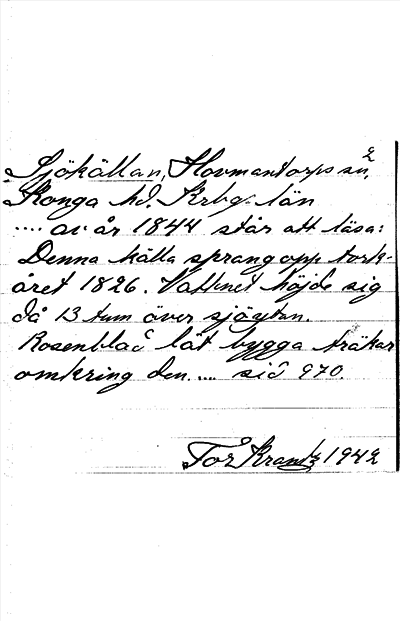 Sjökällan, Hovmantorps sn,
2
Konga hd. Krbg. län
.... av år 1844 står att läsa:
Denna källa sprang opp tork-
året 1826. Vattnet höjde sig
då 13 tum över sjöytan.
Rosenblad lät bygga träkar
omkring den .... sid 970.
Tor Krantz 1942